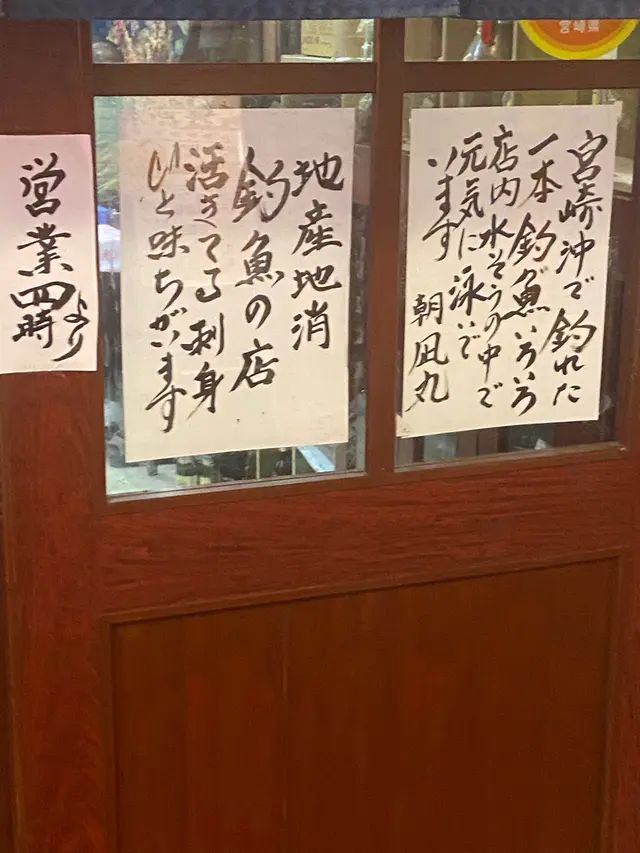 宮崎沖で釣れた
一本釣魚いろいろ
店内水そうの中で
元気に泳いで
います 朝凪丸
地産地消
釣魚の店
活きてる刺身
ひと味ちがいます
営業四時
より